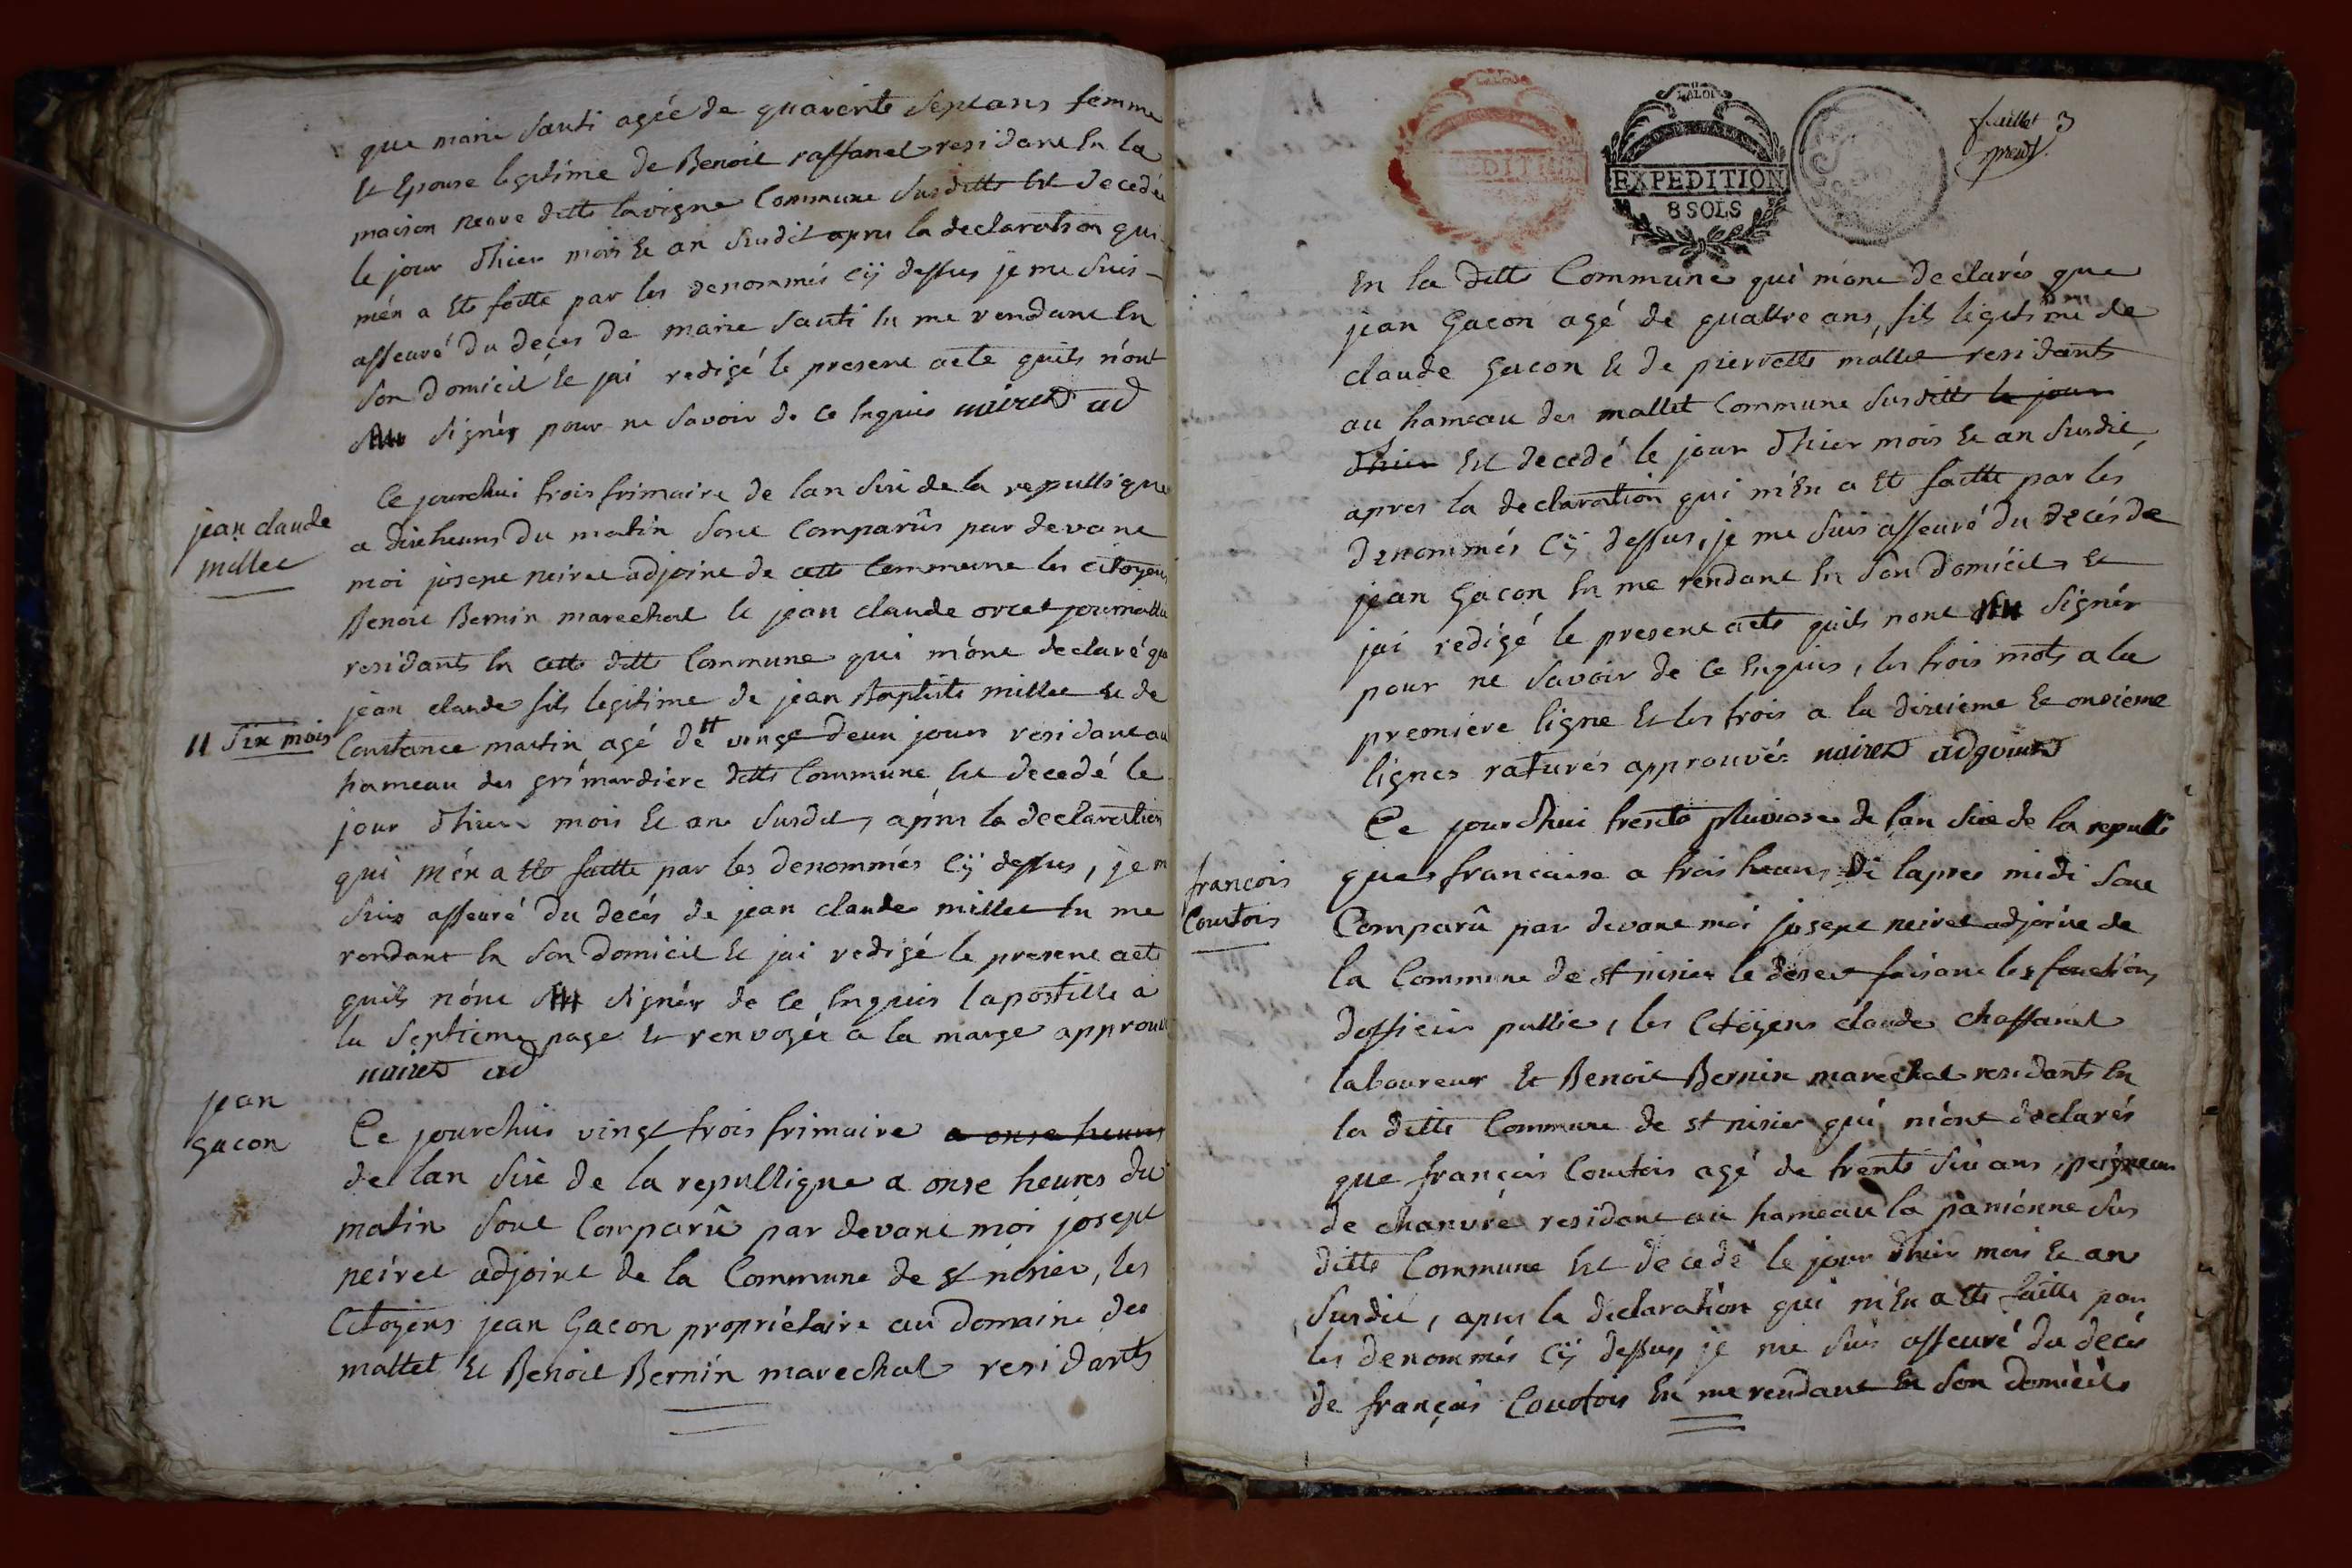 que marie Santi agéé de quarente Septans femme
Et Epouse legitime de Benoit raffanel residant En la
maison neuve ditte lavigne Commune Susditte Est decedée
le jour d'hier mois Et an Susdit apres la declaration qui
m'en a Ete faitte par les denommés cÿ dessus je me Suis
asseuré du deces de marie Santi En me rendant En
Son domicil Et jai redigé le present acte quils n'ont
signés pour ne Savoir de ce Enquis neiret ad
jean claude
millet
Ce jourdhui trois frimaire de lan Sixe de la republique
a dix heures du matin Sont Comparûs par devant
moi josept neiret adjoint de cette Commune les citoyens
Benoit Bernin marechal Et jean claude orcet journallie
residants En cette ditte Commune qui m'ônt declaré que
jean claude fils legitime de jean Baptiste millet Et de
11 Six mois
Constance martin agé de 11 vingt deux jours residant au
hameau des grimardiere ditte Commune Est decedé le
jour d'hier mois Et an Susdit, apres la declaration
qui m'en a Ete faitte par les denommés cÿ dessus, je m
Suis asseuré du decés de jean claude millet En me
rendant En Son domicil Et jai redigé le present acte
quils n'ônt signér de ce Enquis lapostille a
la Septieme page Et renvoyéé a la marge approuv
neiret ad
jean
Gacon
Ce jourdhui vingt trois frimaire a onse heures
de lan Sixe de la republique a onse heures du
matin Sont Comparûs par devant moi josept
neiret adjoint de la Commune de st nisier, les
Citoyens jean Gacon propriétaire au domaine des
mallet Et Benoit Bernin marechal residants
LA LOI
EXPEDITION
LA LOI
EXPEDITION
8 SOLS
feuillet 3
En la ditte Commune qui m'ont declarés que
jean Gacon agé de quattre ans, fils legitime de
claude Gacon Et de pierrette mallet residants
au hameau des mallet Commune Susditte le jour
d'hier Est decedé le jour d'hier mois Et an Susdit,
apres la declaration qui m'En a Eté faitte par les
denommés cÿ dessus, je me Suis asseuré du decés de
jean Gacon En me rendant En Son domicil, Et
jai redigé le present acte quils n'ont signér
pour ne Savoir de ce Enquis, les trois mots a la
premiere ligne Et les trois a la dixieme Et onsieme
lignes raturés approuvés neiret adjoint
francois
Courtois
Ce jourdhui trente pluviose de lan Sixe de la republi
que francaise a trois heures di lapres midi Sont
Comparû par devant moi josept neiret adjoint de
la Commune de st nisier le desert faisant les fonctions
dofficier public, les Citoÿens claude chaffanel
laboureur Et Benoit Bernin marechal residants En
la ditte Commune de st nisier qui m'ônt declarés
que françois Courtois agé de trente Six ans, peigneur
de chanvre residant au hameau la panienne Sus
ditte Commune Est decedé le jour d'hier mois Et an
Susdit, apres la declaration qui m'En a Ete faitte par
les denommés cÿ dessus, je me Suis asseuré du decés
de françois Courtois En me rendant En Son domicil